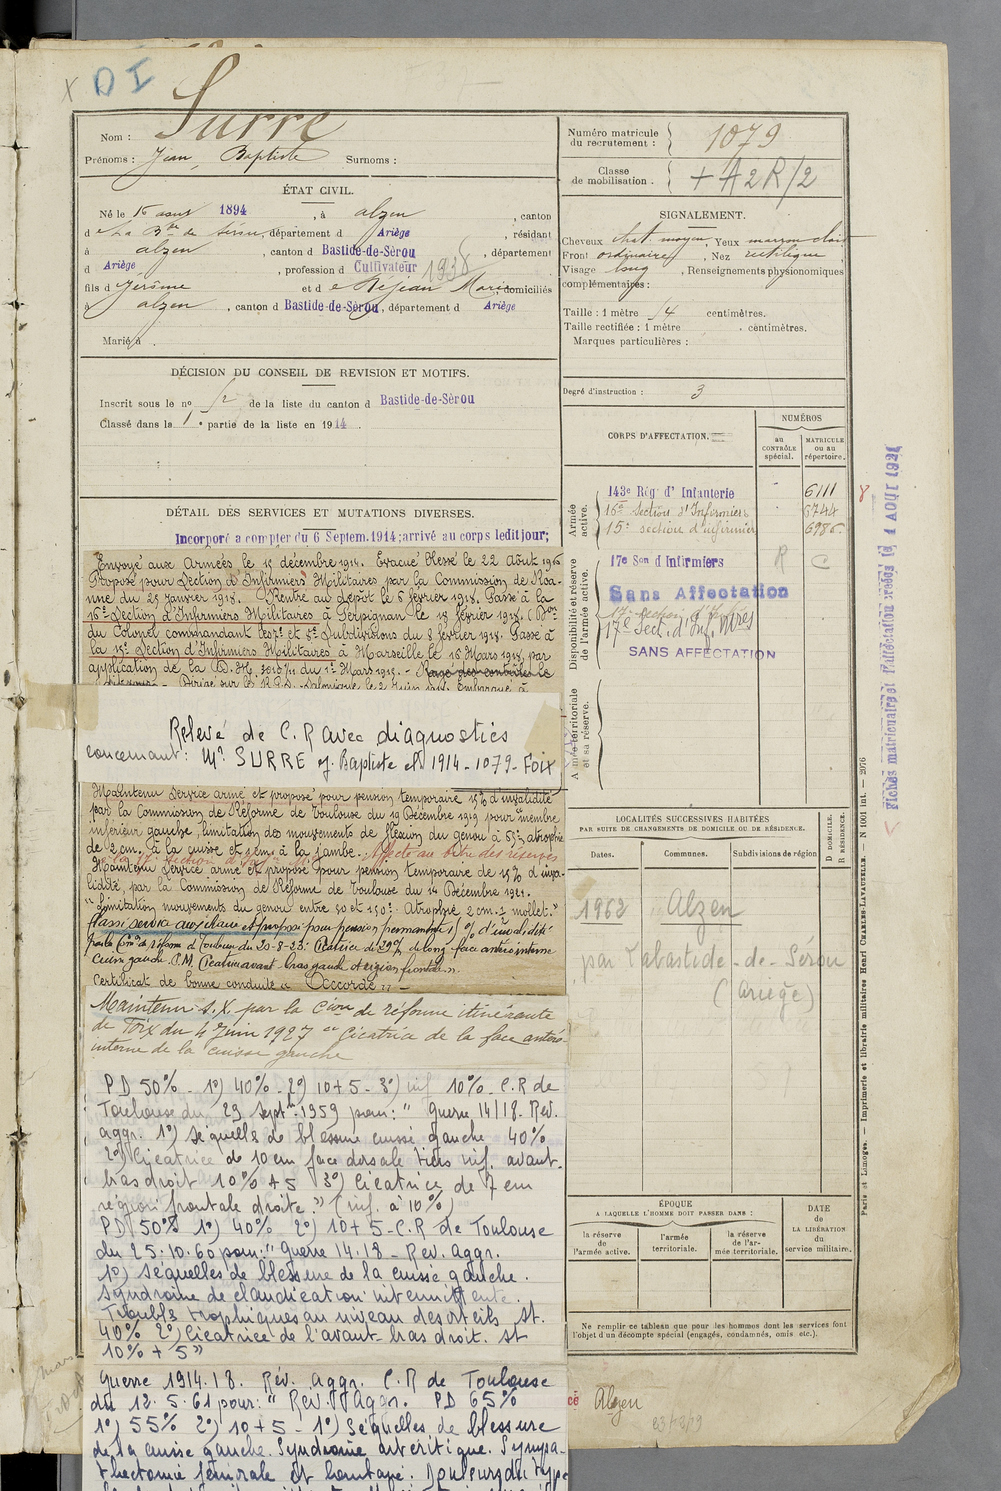 D I
Nom : Surre
Prénoms : Jean, Baptiste Surnoms :
ÉTAT CIVIL.
Né le 16 aout 1894, à alzen, canton
de La B.de de Sérou, département d Ariège, résidant
à alzen, canton d Bastide-de-Sèrou, département
d Ariège, profession d Cultivateur 1938
fils d Jérôme et de Réjean Marie domiciliés
à alzen, canton d Bastide-de-Sèrou, département d Ariège
Marié à .
DÉCISION DU CONSEIL DE REVISION ET MOTIFS.
Inscrit sous le no 52 de la liste du canton d Bastide-de-Sèrou
Classé dans la 1e partie de la liste en 1914.
DÉTAIL DES SERVICES ET MUTATIONS DIVERSES.
Incorporé a compter du 6 Septem. 1914; arrivé au corps ledit jour;
Envoyé aux Armées le 15 décembre 1914. Evacué blessé le 22 Août 1916
Proposé pour Section d'Infirmiers Militaires par la Commission de Roa-
nne du 25 janvier 1918. Rentré au dépôt le 5 février 1918. Passé à la
16e Section d'Infirmiers Militaires à Perpignan le 18 février 1918. (Don
du Colonel commandant les 7e et 8e Subdivisions du 8 février 1918. Passé à
la 15e Section d'Infirmiers Militaires à Marseille le 16 Mars 1918, par
application de la D.M. 5015/11 du 1er Mars 1918. - Rayé des contrôles le
Dirigé sur le Salonique le 2 Juin 1918. Embarqué à
Relevé de C.R avec diagnostics
concernant : Mr SURRE J. Baptiste cl 1914 - 1079 - FOIX
Maintenu service armé et proposé pour pension temporaire 15% d'invalidité
par la Commission de Réforme de Toulouse du 19 Décembre 1919 pour "membre
inférieur gauche, limitation des mouvements de flexion du genou à 55°, atrophie
de 2 cm. à la cuisse et 1 cm. à la jambe. Affecté au titre des réserves
à la 17e section d'Inf.
Maintenu Service armé et proposé pour pension temporaire de 15% d'inva-
lidité, par la Commission de Réforme de Toulouse du 14 Décembre 1921.
"Limitation mouvements du genou entre 50 et 150°. Atrophie 2 cm. 1/2 mollet."
Passé service auxiliaire et proposé pour pension permanente 15% d'invalidité
par la Com.on de réforme de Toulouse du 20-8-23: Cicatrice de 29c/m de long face antéro interne
cuisse gauche. P.M. Cicatrice avant bras gauche et région frontale".
Certificat de bonne conduite "Accordé" -
Maintenu S.X. par la Cion de réforme itinérante
de Foix du 4 Juin 1927 "Cicatrice de la face antéro
interne de la cuisse gauche
PD 50% - 1°) 40% - 2°) 10+5 - 3°) inf 10% - C.R de
Toulouse du 29 Sept.1959 pour: "Guerre 14/18. Rev.
aggr. 1°) séquelles de blessure cuisse gauche 40%
2°) Cicatrice de 10 cm face dorsale tiers inf. avant-
bras droit 10% + 5 3°) Cicatrice de 7 cm
région frontale droite." (inf. à 10%)
PD 50% 1°) 40% 2°) 10+5 - C.R de Toulouse
du 25.10.60 pour: "Guerre 14.18 - Rev. Aggr.
1°) séquelles de blessure de la cuisse gauche.
Syndrome de claudication intermittente.
Troubles trophiques au niveau des orteils St.
40% 2°) Cicatrice de l'avant bras droit. St
10% + 5"
Guerre 1914.18. Rév. aggr. C.R de Toulouse
du 12.5.61 pour: " Rev. Aggr. PD 65%
1°) 55% 2°) 10+5 - 1°) Séquelles de blessure
de la cuisse gauche. Syndrome artéritique. Sympa-
thectomie fémorale et lombaire. Douleurs du type
Numéro matricule
du recrutement : 1079
Classe
de mobilisation . + A2R/2
SIGNALEMENT.
Cheveux chat. moyen, Yeux marron clair
Front ordinaire, Nez rectiligne,
Visage long, Renseignements physionomiques
complémentaires :
Taille : 1 mètre 54 centimètres.
Taille rectifiée : 1 mètre . centimètres.
Marques particulières :
Degré d'instruction : 3
CORPS D'AFFECTATION.
NUMÉROS
au CONTRÔLE spécial.
MATRICULE ou au répertoire.
Armée active.
143e Rég. d' Infanterie 6111
16e Section d'Infirmiers 8744
15e section d'infirmier 6986
Disponibilité et réserve de l'armée active.
17e Son d Infirmiers R C
Sans Affectation
17e section d'Infirm
17e Sect. d'Inf. Mres
SANS AFFECTATION
Armée territoriale et sa réserve.
LOCALITÉS SUCCESSIVES HABITÉES
PAR SUITE DE CHANGEMENTS DE DOMICILE OU DE RÉSIDENCE.
D DOMICILE. R RÉSIDENCE.
Dates. Communes. Subdivisions de région
1962 Alzen
par Labastide-de-Sérou
(Ariège)
ÉPOQUE
A LAQUELLE L'HOMME DOIT PASSER DANS :
la réserve de l'armée active.
l'armée territoriale.
la réserve de l'armée territoriale.
DATE de LA LIBÉRATION du service militaire.
Ne remplir ce tableau que pour les hommes dont les services font
l'objet d'un décompte spécial (engagés, condamnés, omis etc.).
Alzen
Paris et Limoges. — Imprimerie et librairie militaires Henri CHARLES-LAVAUZELLE. — N 1001 Int. — 2076